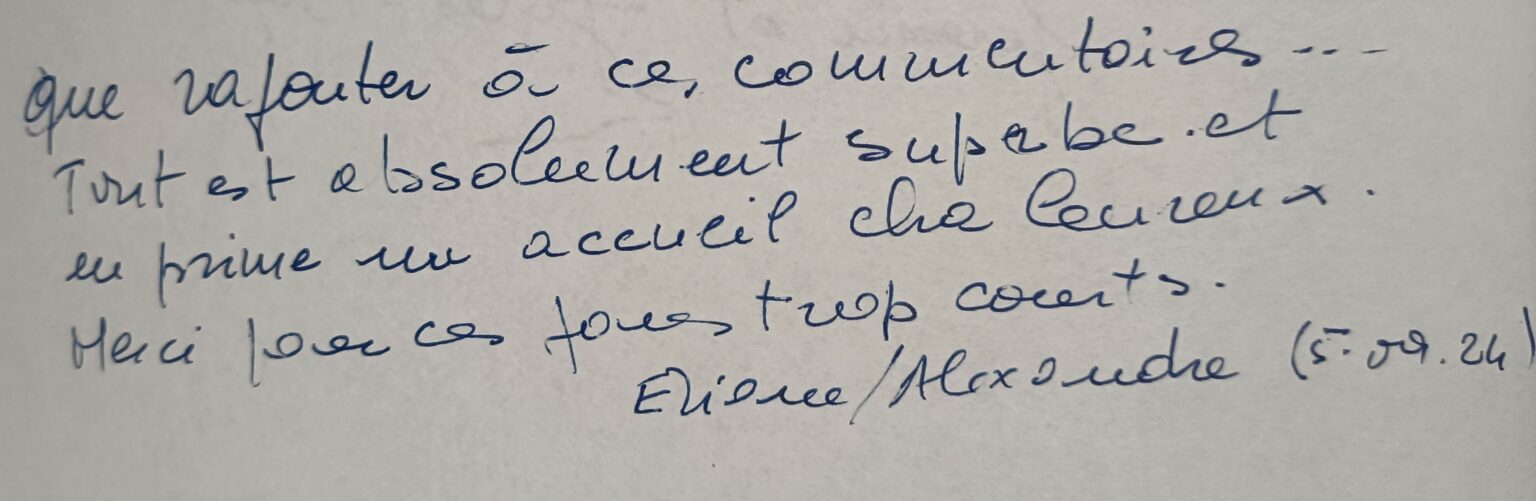 que rajouter à ces commentaires ...
Tout est absolument superbe et
en prime un accueil chaleureux.
Merci pour ces jours trop courts.
Eliane/Alexandre (5.09.24)